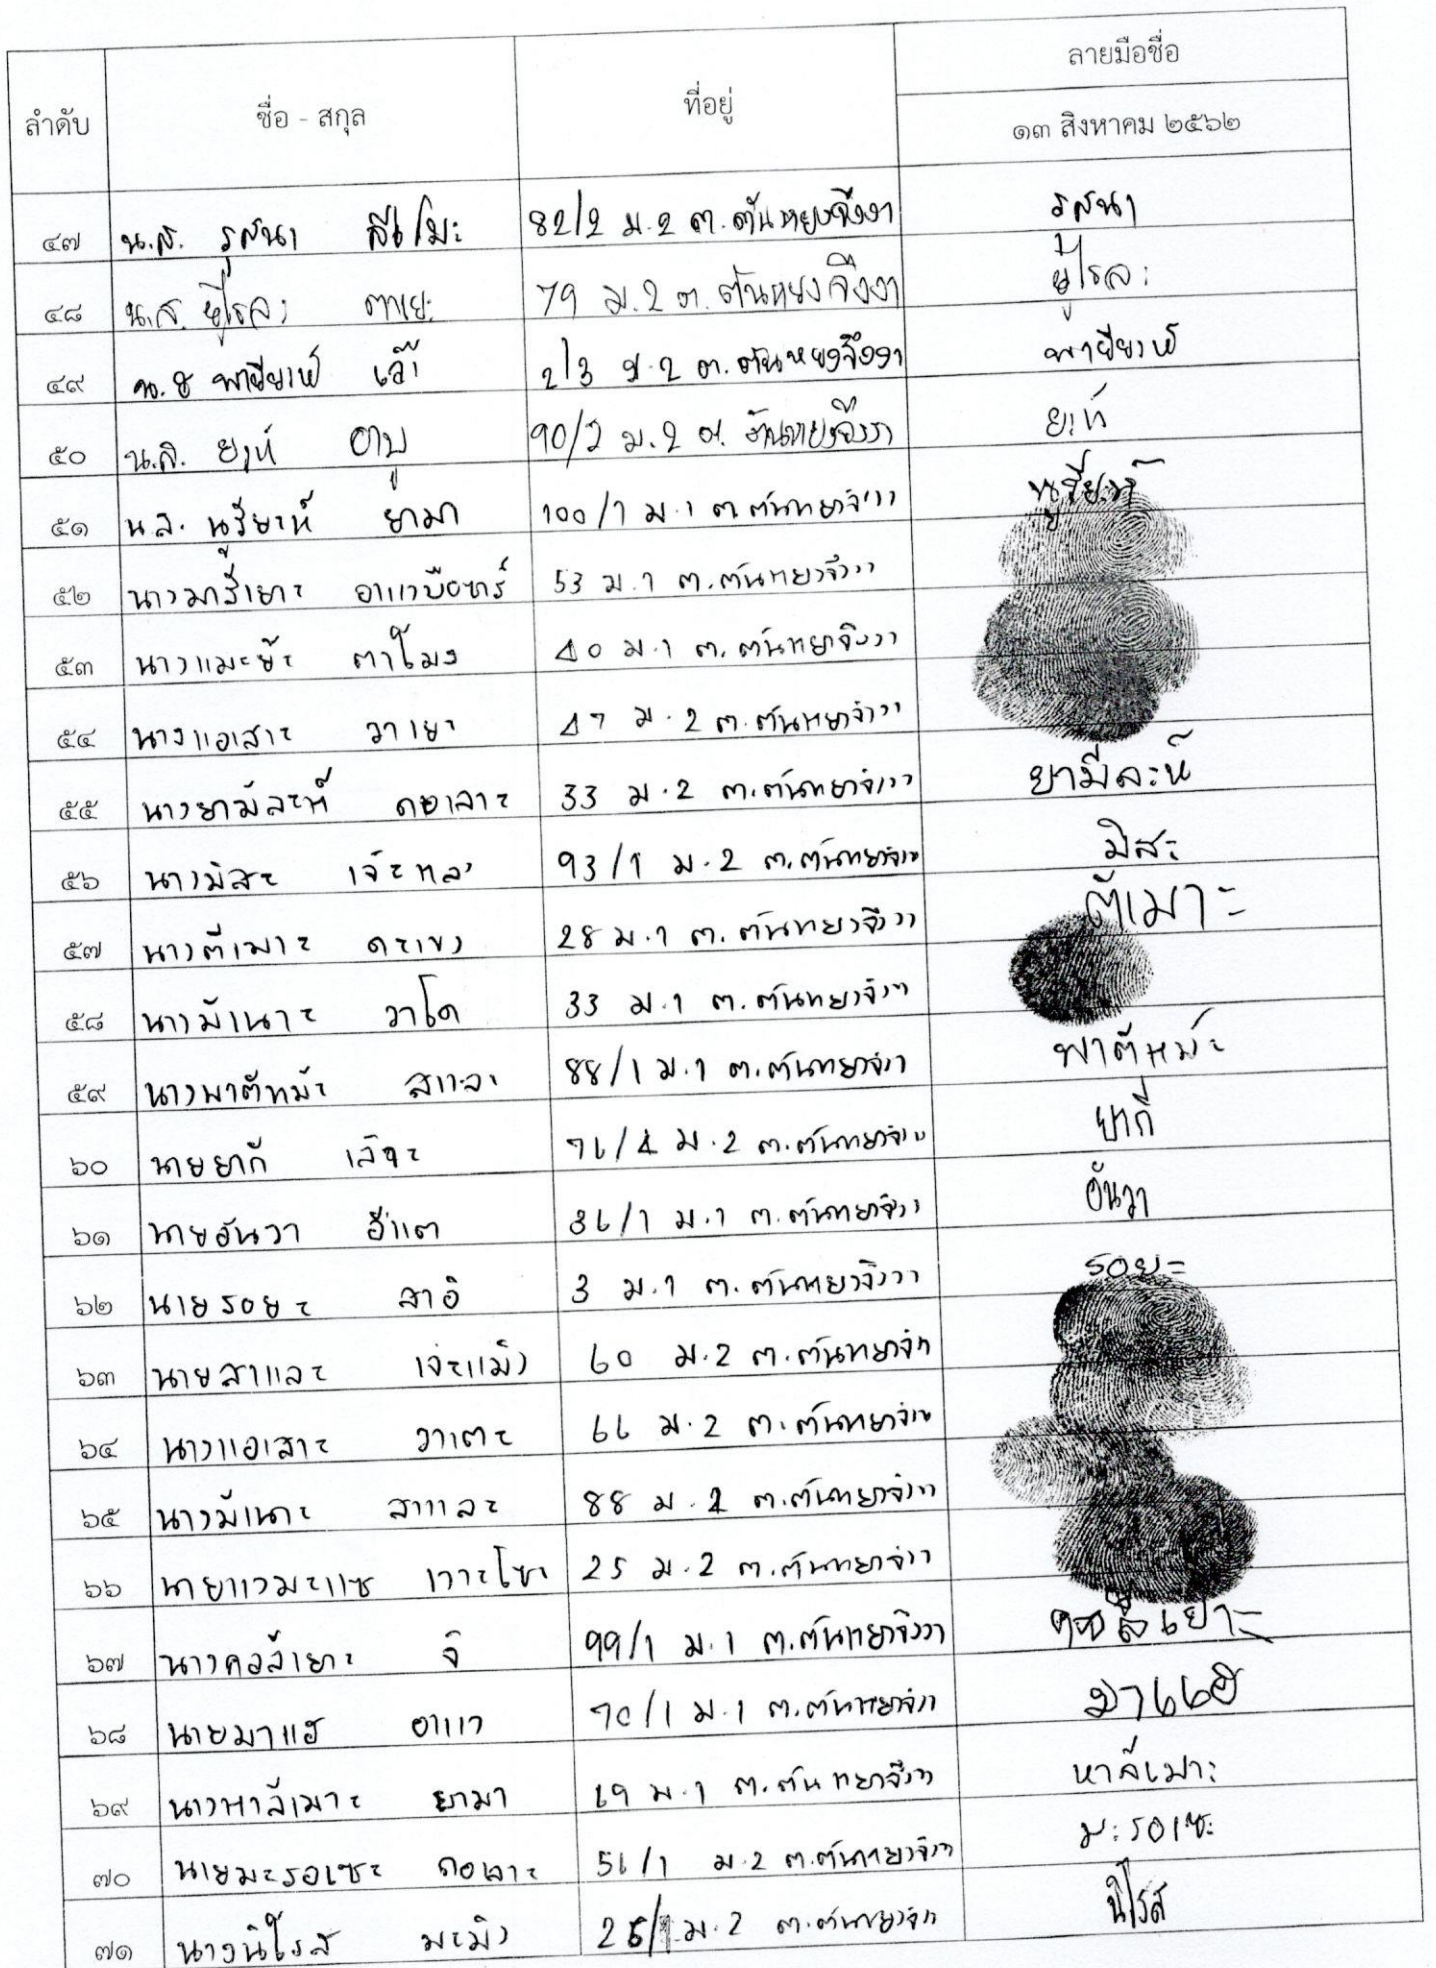 ลำดับ ชื่อ - สกุล ที่อยู่ ลายมือชื่อ
๑๓ สิงหาคม ๒๕๖๒
๔๗ น.ส. รุสนา สีเโมะ 82/2 ม.2 ต.ตันหยงจึงงา รุสนา
๔๘ น.ส. นูไรละ ตาเยะ 79 ม.2 ต.ตันหยงจึงงา นูไรละ
๔๙ น.ส พายียาห์ 2/3 ม.2 ต.ตันหยงจึงงา พายียาห์
๕๐ น.ส. ยาห์ อาบู 90/2 ม.2 ต. ตันหยงจึงงา ยาห์
๕๑ น.ส. นูรียะห์ ยามา 100/1 ม.1 ต.ตันหยงจึงงา นูรียะห์
๕๒ 53 ม.1 ต.ตันหยงจึงงา
๕๓ นางแมะย๊ะ ตาโมง 40 ม.1 ต.ตันหยงจึงงา
๕๔ นางแอเสาะ วาเยะ 47 ม.2 ต.ตันหยงจึงงา
๕๕ นางยามีละห์ ดอเลาะ 33 ม.2 ต.ตันหยงจึงงา ยามีละห์
๕๖ นางมิสะ เจ๊ะหละ 93/1 ม.2 ต.ตันหยงจึงงา มิสะ
๕๗ นางตีเมาะ 28 ม.1 ต.ตันหยงจึงงา ตีเมาะ
๕๘ นางมีเนาะ วาโด 33 ม.1 ต.ตันหยงจึงงา
๕๙ นางพาตีหม๊ะ สาและ 88/1 ม.1 ต.ตันหยงจึงงา พาตีหม๊ะ
๖๐ นายยากี 76/4 ม.2 ต.ตันหยงจึงงา ยากี
๖๑ นายอันวา อีแต 36/1 ม.1 ต.ตันหยงจึงงา อันวา
๖๒ นายรอยะ สาอิ 3 ม.1 ต.ตันหยงจึงงา รอยะ
๖๓ นายสาและ เจ๊ะแม็ง 60 ม.2 ต.ตันหยงจึงงา
๖๔ นางแอเสาะ วาเตะ 66 ม.2 ต.ตันหยงจึงงา
๖๕ นางมีเนาะ สาและ 88 ม.2 ต.ตันหยงจึงงา
๖๖ นายแวมะแซ 25 ม.2 ต.ตันหยงจึงงา
๖๗ นางคอลีเยาะ จิ 99/1 ม.1 ต.ตันหยงจึงงา คอลีเยาะ
๖๘ นายมาแฮ อาแว 70/1 ม.1 ต.ตันหยงจึงงา มาแฮ
๖๙ นางหาลีเมาะ ยามา 69 ม.1 ต.ตันหยงจึงงา หาลีเมาะ
๗๐ นายมะรอเซะ ดอเลาะ 56/1 ม.2 ต.ตันหยงจึงงา มะรอเซะ
๗๑ นางนิโรส มะมิง ม.2 ต.ตันหยงจึงงา นิโรส